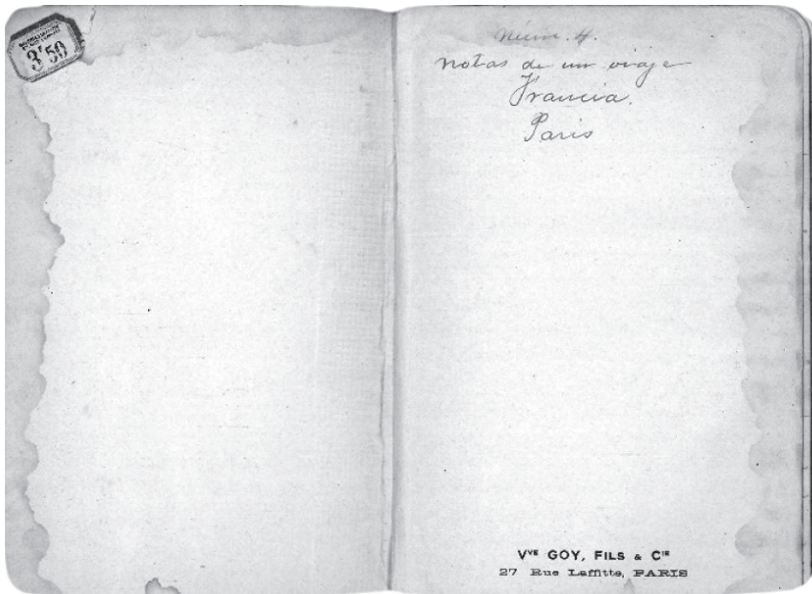 3f50
Núm. 4.
Notas de un viaje
Francia.
Paris
Vve GOY, FILS & Cie
27 Rue Laffitte, PARIS